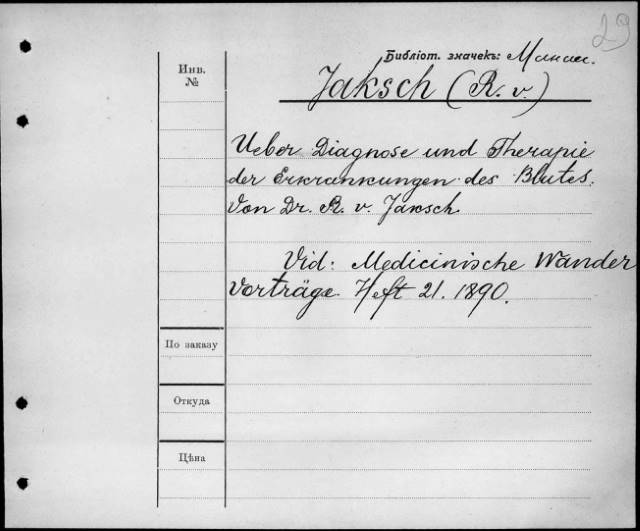 29
Библіот. значекъ:
Инв.
№
Jaksch (R. v.)
Ueber Diagnose und Therapie
der Erkrankungen des Blutes.
Von Dr. R. v. Jaksch.
Vid: Medicinische Wander
Vorträge Heft 21. 1890.
По заказу
Откуда
Цѣна